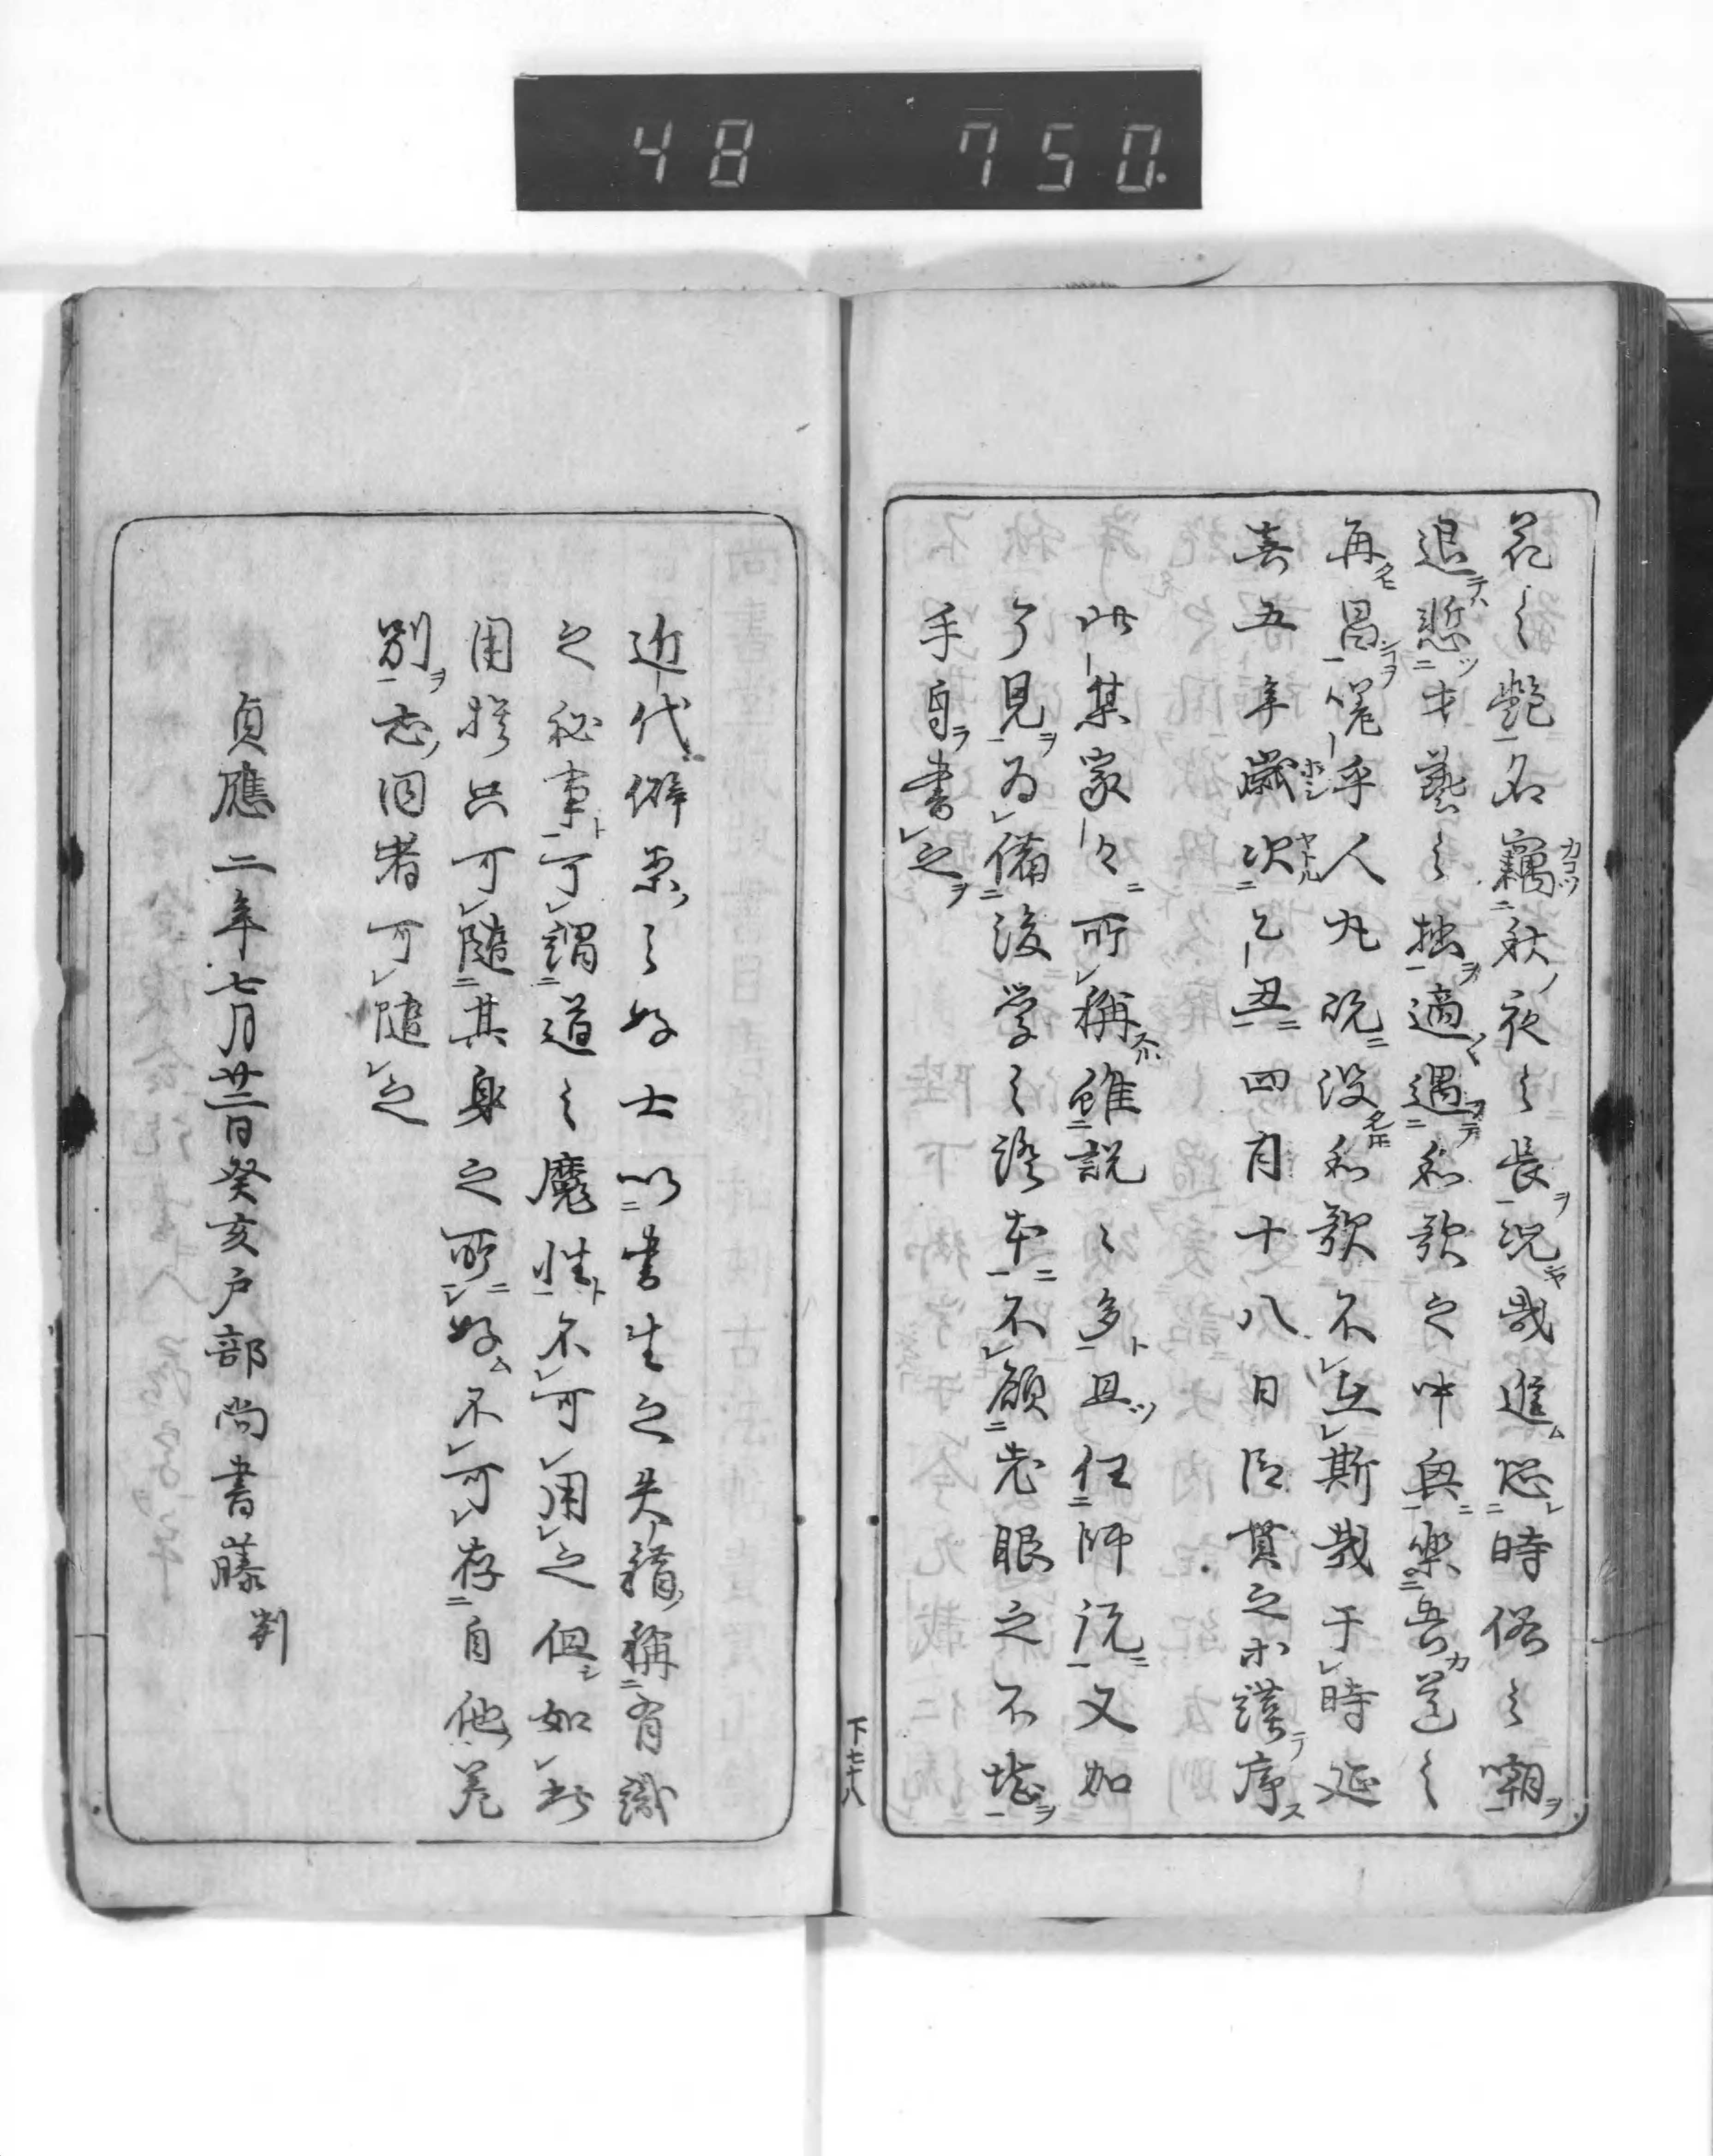 48 750.
花之艶名竊秋夜之長況哉進恐時俗之嘲
退慙才藝之拙適遇和歌之中興樂吾道之
再昌嗟乎人丸既没和歌不在斯哉于時延
喜五年歳次乙丑四月十八日臣貫之等謹序
此集家々所稱雖説々多且任師説又加
了見為備後学之證本不顧老眼之不堪
手自書之
下七十八
近代僻案之好士以書生之失錯稱有識
之秘事可謂道之魔性不可用之但如此
用捨只可隨其身之所好不可存自他差
別志同者可隨之
貞應二年七月廿二日癸亥戸部尚書藤 判